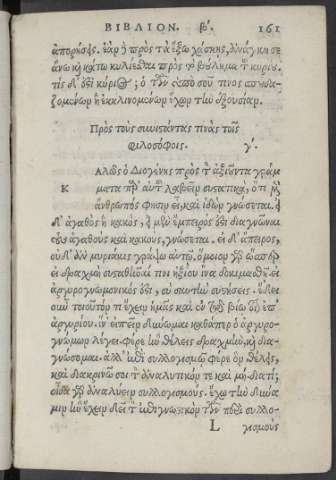 ΒΙΒΛΙΟΝ. β′. 161
ἀπορήσῃς. ἐὰν ᾖ πρὸς τὰ ἔξω χάσκῃς, ἀνάγκη σε
ἄνω καὶ κάτω κυλίεσθαι πρὸς τὸ βούλημα τοῦ κυρίου.
τίς δ' ἐστὶ κύριος; ὁ τῶν ὑπὸ σοῦ τινος σπουδα-
ζομένων ἢ ἐκκλινομένων ἔχων τὴν ἐξουσίαν.
Πρὸς τοὺς συνιστάντας τινὰς τοῖς
Φιλοσόφοις. γ′.
Κ ΑΛῶς ὁ Διογένης πρὸς τὸν ἀξιοῦντα γράμ
ματα παρ' αὐτοῦ λαβεῖν συστατικὰ, ὅτι μὲν
ἄνθρωπός φησιν εἶ, καὶ ἰδὼν γνώσεται. εἰ
δ' ἀγαθὸς ἢ κακὸς, εἰ μὲν ἔμπειρός ἐστι διαγνῶναι
τοὺς ἀγαθοὺς καὶ κακοὺς, γνώσεται. εἰ δ' ἄπειρος,
οὐδ' ἂν μυριάκις γράψω αὐτῷ. ὅμοιον γὰρ ὥσπερ
εἰ δραχμὴ συσταθῆναί τινι ἠξίου ἵνα δοκιμασθῇ. εἰ
ἀργυρογνωμονικός ἐστι, σὺ σαυτὴν συστήσεις. ἔδει
οὖν τοιοῦτόν τι ἔχειν ἡμᾶς καὶ ἐν τῷ βίῳ οἷον ἐπ'
ἀργυρίου. ἵν' εἰπεῖν δύνωμαι καθάπερ ὁ ἀργυρο-
γνώμων λέγει. φέρε ἣν θέλεις δραχμὴν, καὶ δια-
γνώσομαι. ἀλλ' ἐπὶ συλλογισμῶν φέρε ὃν θέλεις,
καὶ διακρινῶ σοι τὸν ἀναλυτικόν τε καὶ μή. διατί;
οἶδα γὰρ ἀναλύειν συλλογισμούς. ἔχω τὴν δύνα
μιν ἣν ἔχειν δεῖ τὸν ἐπιγνωστικὸν τῶν περὶ συλλο-
L γισμοὺς